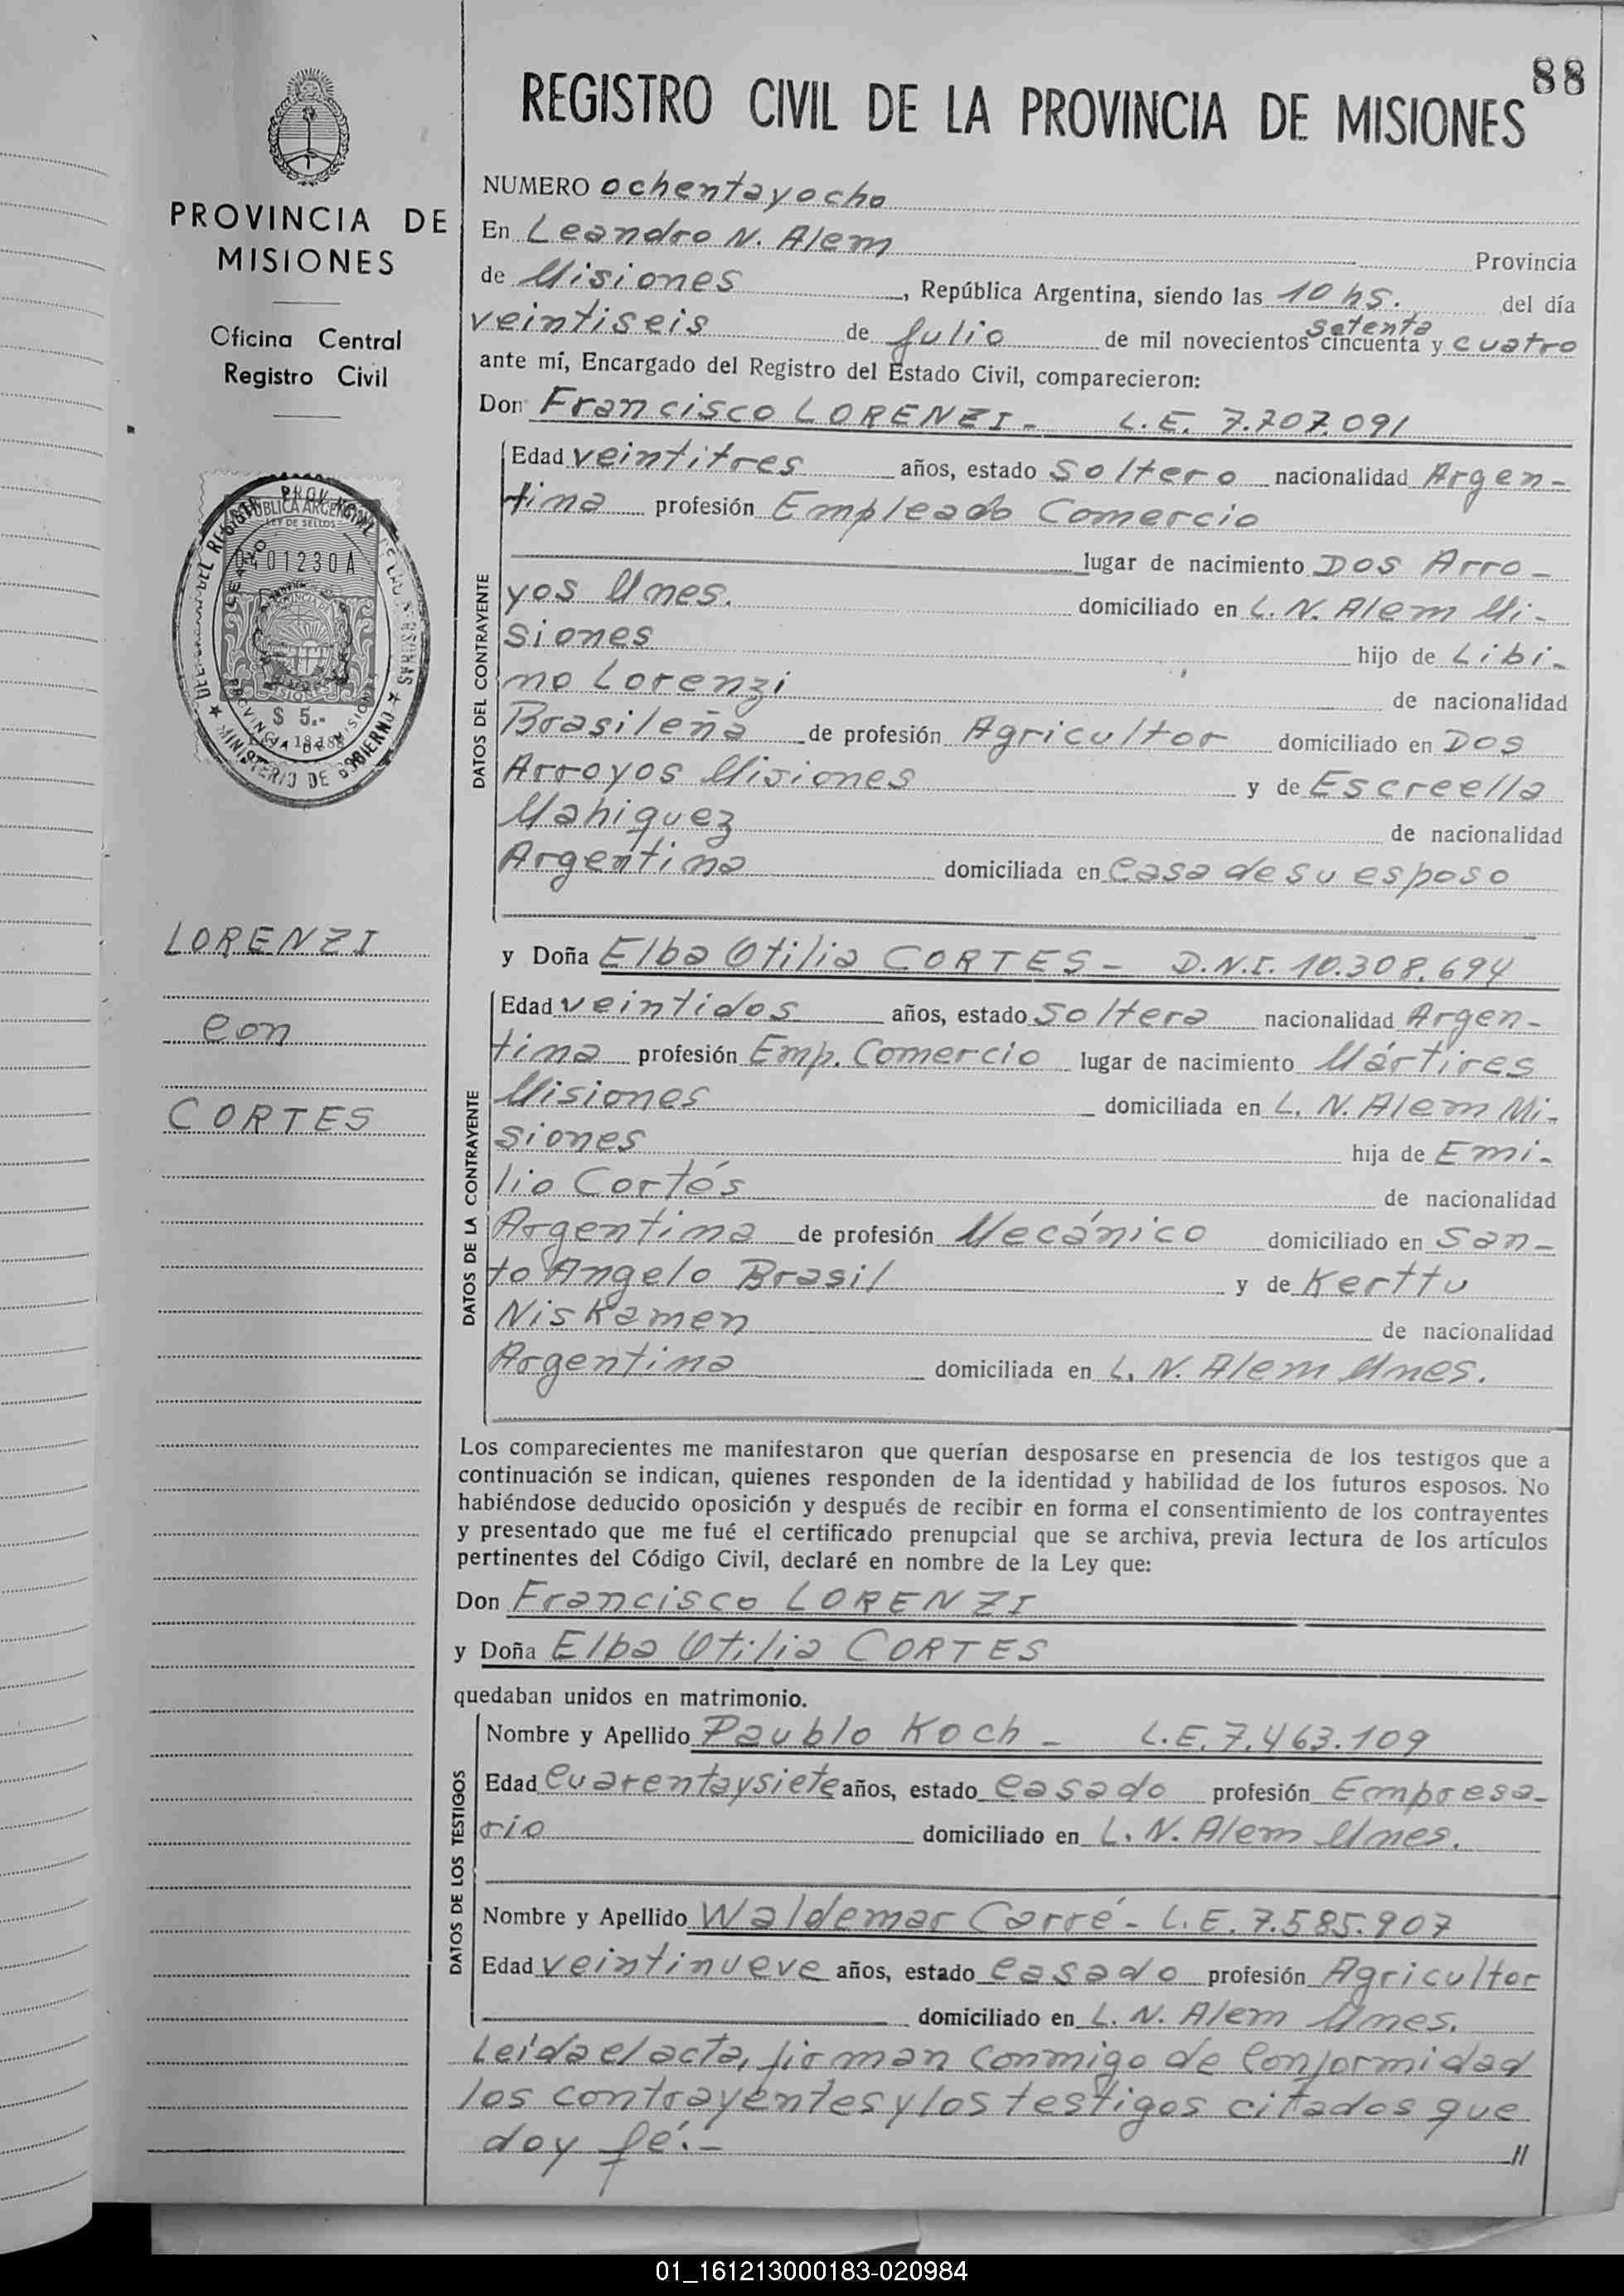 88
REGISTRO CIVIL DE LA PROVINCIA DE MISIONES
PROVINCIA DE
MISIONES
Oficina Central
Registro Civil
REPUBLICA ARGENTINA
LEY DE SELLOS
0401230A
$ 5.-
MINISTERIO DE GOBIERNO
LORENZI
con
CORTES
NUMERO ochentayocho
En Leandro N. Alem Provincia
de Misiones, República Argentina, siendo las 10 hs. del día
veintiseis de Julio de mil novecientos setenta cincuenta y cuatro
ante mí, Encargado del Registro del Estado Civil, comparecieron:
Don Francisco LORENZI - L.E. 7.707.091
DATOS DEL CONTRAYENTE
Edad veintitres años, estado Soltero nacionalidad Argen-
tina profesión Empleado Comercio
lugar de nacimiento Dos Arro-
yos Mnes. domiciliado en L. N. Alem Mi-
siones hijo de Libi-
no Lorenzi de nacionalidad
Brasileña de profesión Agricultor domiciliado en Dos
Arroyos Misiones y de Escreella
Mahiquez de nacionalidad
Argentina domiciliada en casa de su esposo
y Doña Elba Otilia CORTES - D.N.I. 10.308.694
DATOS DE LA CONTRAYENTE
Edad veintidos años, estado Soltera nacionalidad Argen-
tina profesión Emp. Comercio lugar de nacimiento Mártires
Misiones domiciliada en L. N. Alem Mi-
siones hija de Emi-
lio Cortés de nacionalidad
Argentina de profesión Mecánico domiciliado en San-
to Angelo Brasil y de Kerttu
Niskamen de nacionalidad
Argentina domiciliada en L. N. Alem Mnes.
Los comparecientes me manifestaron que querían desposarse en presencia de los testigos que a
continuación se indican, quienes responden de la identidad y habilidad de los futuros esposos. No
habiéndose deducido oposición y después de recibir en forma el consentimiento de los contrayentes
y presentado que me fué el certificado prenupcial que se archiva, previa lectura de los artículos
pertinentes del Código Civil, declaré en nombre de la Ley que:
Don Francisco LORENZI
y Doña Elba Otilia CORTES
quedaban unidos en matrimonio.
DATOS DE LOS TESTIGOS
Nombre y Apellido Paublo Koch - L.E. 7.463.109
Edad cuarentaysiete años, estado casado profesión Empresa-
rio domiciliado en L. N. Alem Mnes.
Nombre y Apellido Waldemar Carré - L.E. 7.585.907
Edad veintinueve años, estado casado profesión Agricultor
domiciliado en L. N. Alem Mnes.
Leida el acta, firman conmigo de conformidad
los contrayentes y los testigos citados que
doy fé.- //
01_161213000183-020984